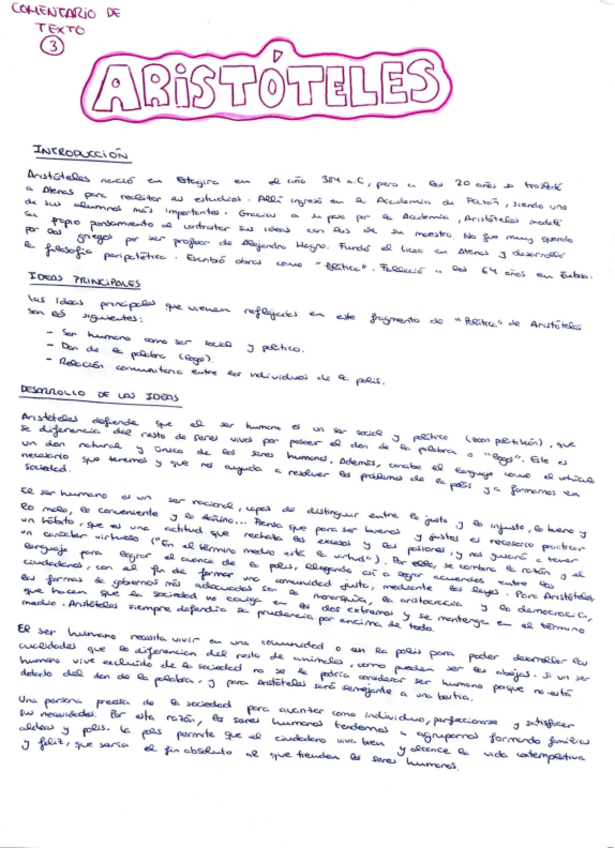 COMENTARIO DE
TEXTO
3
ARISTÓTELES
INTRODUCCIÓN
Aristóteles nació en Estagira en el año 384 a.C, pero a los 20 años se trasladó
a Atenas para realizar sus estudios. Allí ingresó en la Academia de Platón, siendo uno
de sus alumnos más importantes. Gracias a su paso por la Academia, Aristóteles modeló
su propio pensamiento al contrastar sus ideas con las de su maestro. No fue muy querido
por los griegos por ser profesor de Alejandro Magno. Fundó el Liceo en Atenas y desarrolló
la filosofía peripatética. Escribió obras como "Política". Falleció a los 64 años en Eubea.
IDEAS PRINCIPALES
Las ideas principales que vienen reflejadas en este fragmento de "Política" de Aristóteles
son las siguientes:
- Ser humano como ser social y político.
- Don de la palabra (logos).
- Relación comunitaria entre los individuos de la polis.
DESARROLLO DE LAS IDEAS
Aristóteles defiende que el ser humano es un ser social y político (zoon politikón), que
se diferencia del resto de seres vivos por poseer el don de la palabra o "logos". Este es
un don natural y único de los seres humanos. Además, concibe el lenguaje como el vehículo
necesario que tenemos y que nos ayuda a resolver los problemas de la polis y a formarnos en
sociedad.
El ser humano es un ser racional, capaz de distinguir entre lo justo y lo injusto, lo bueno y
lo malo, lo conveniente y lo dañino... Piensa que para ser buenos y justos es necesario practicar
un hábito, que es una actitud que rechaza los excesos y las pasiones, y nos guiará a tener
un carácter virtuoso ("En el término medio está la virtud"). Por ello, se combina la razón y el
lenguaje para lograr el avance de la polis, llegando así a lograr acuerdos entre los
ciudadanos, con el fin de formar una comunidad justa, mediante las leyes. Para Aristóteles,
las formas de gobierno más adecuadas son la monarquía, la aristocracia y la democracia,
que hacen que la sociedad no caiga en los dos extremos y se mantenga en el término
medio. Aristóteles siempre defendía la prudencia por encima de todo.
El ser humano necesita vivir en una comunidad o en la polis para poder desarrollar las
cualidades que lo diferencian del resto de animales, como pueden ser las abejas. Si un ser
humano vive excluido de la sociedad no se le podría considerar ser humano porque no está
dotado del don de la palabra, y para Aristóteles será semejante a una bestia.
Una persona precisa de la sociedad para avanzar como individuo, perfeccionarse y satisfacer
sus necesidades. Por esta razón, los seres humanos tendemos a agruparnos formando familias
aldeas y polis. La polis permite que el ciudadano viva bien y alcance la vida contemplativa
y feliz, que sería el fin absoluto al que tienden los seres humanos.